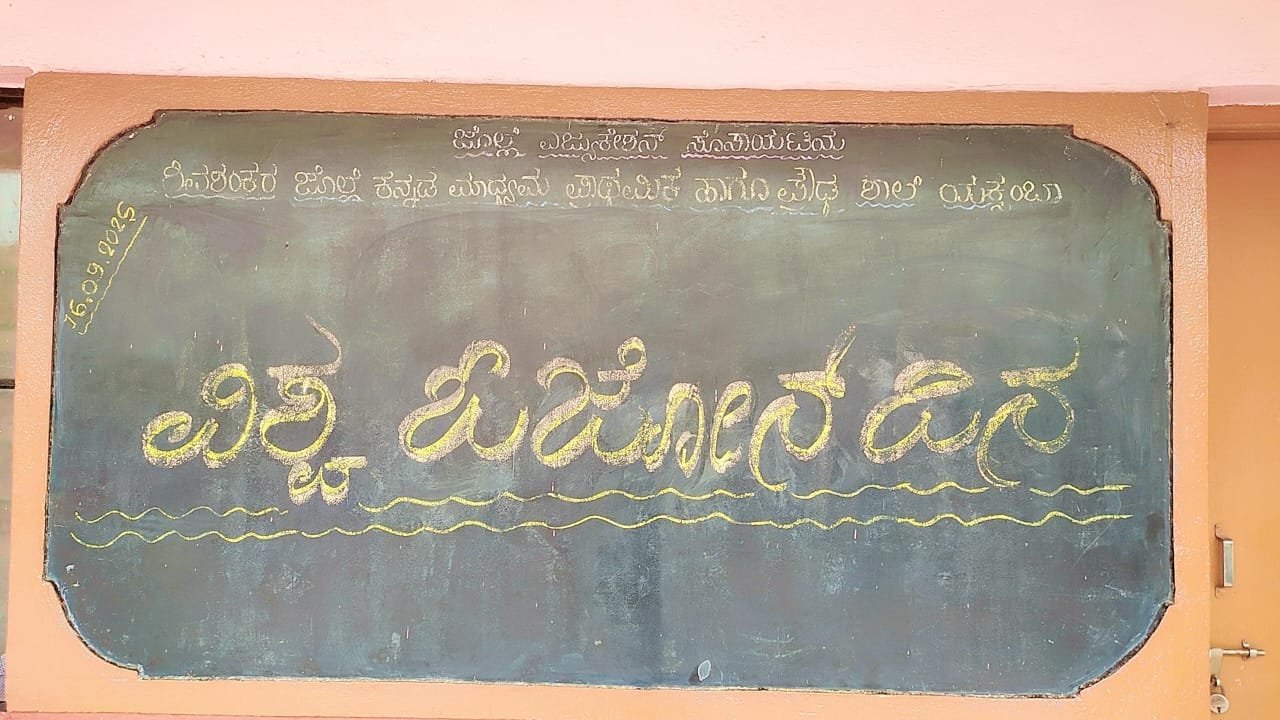 ಜೊಲ್ಲೆ ಎಜ್ಯುಕೇಶನ್ ಸೊಸಾಯಟಿಯ
ಶಿವಶಂಕರ ಜೊಲ್ಲೆ ಕನ್ನಡ ಮಾಧ್ಯಮ ಪ್ರಾಥಮಿಕ ಹಾಗೂ ಪ್ರೌಢ ಶಾಲೆ ಯಕ್ಸಂಬಾ
16.09.2025
ವಿಶ್ವ ಓಜೋನ್ ದಿನ